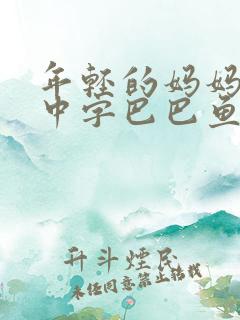 年轻的妈妈
中字巴巴鱼
升斗烟民
未经同意禁止转载